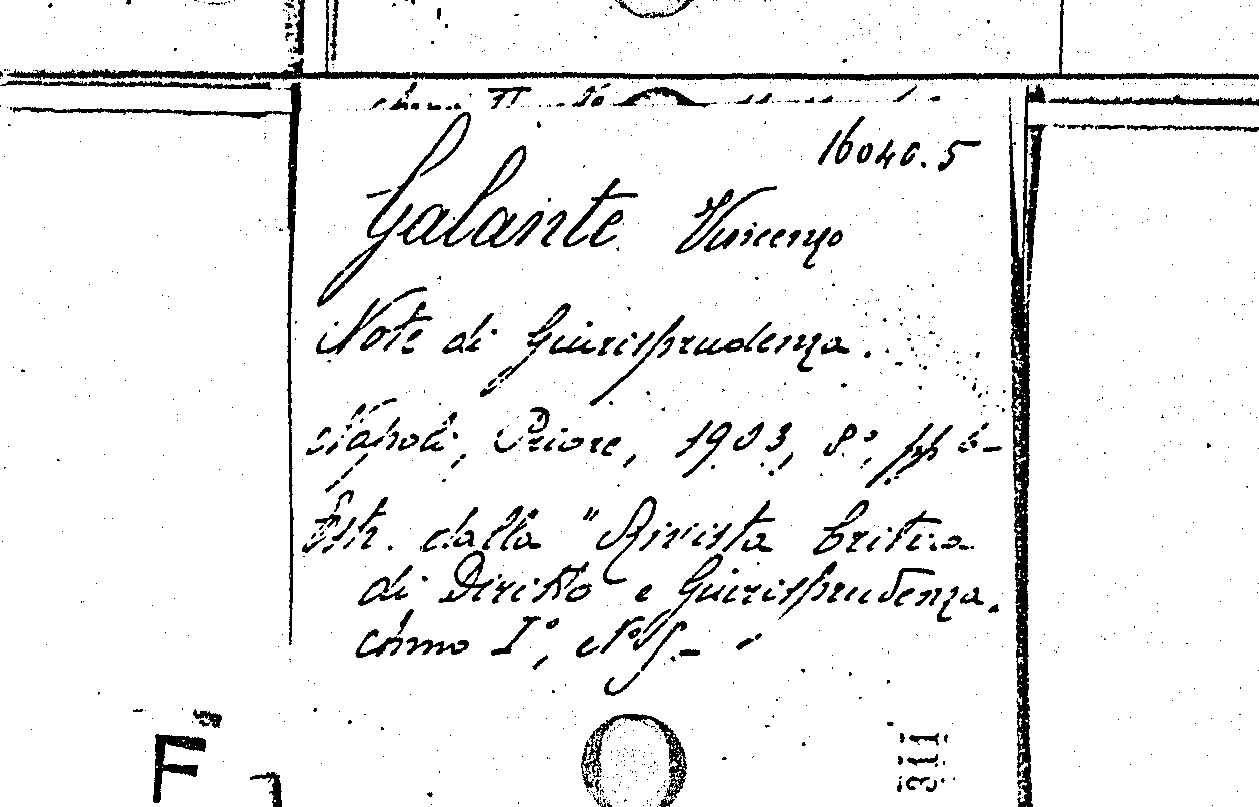 16040.5
Galante Vincenzo
Note di Giurisprudenza.
Napoli, Priore, 1903, 8°, pp 6-
Estr. dalla "Rivista Critica
di Diritto e Giurisprudenza.
Anno I°, N° 5.- "
F
311